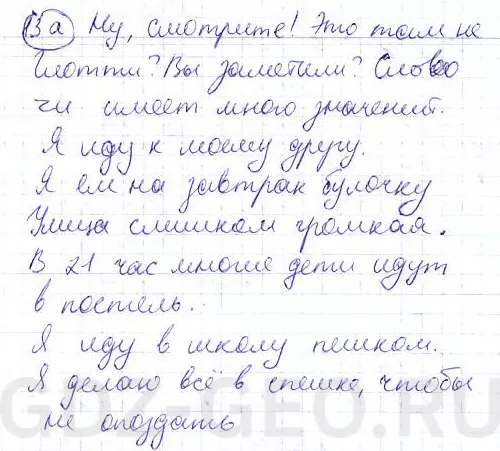 3a Ну, смотрите! Это там не
Шотти? Вы заметили? Слово
чи имеет много значений.
Я иду к моему другу.
Я ем на завтрак булочку
Улица слишком громкая.
В 21 час многие дети идут
в постель.
Я иду в школу пешком.
Я делаю всё в спешке, чтобы
не опоздать
GDZ-GEO.RU